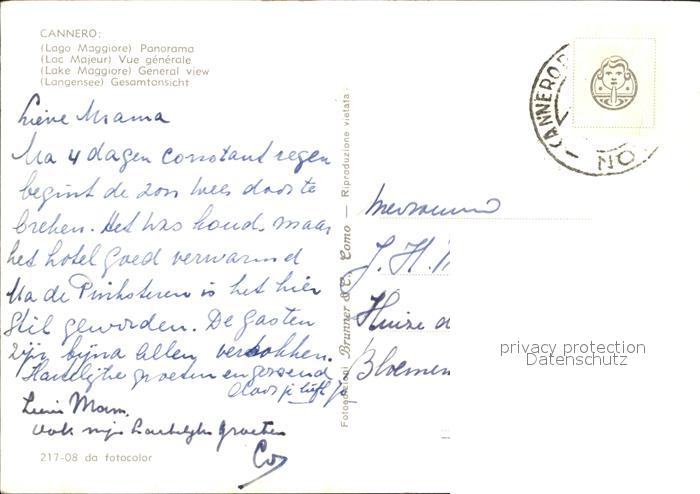 CANNERO:
(Lago Maggiore) Panorama
(Lac Majeur) Vue générale
(Lake Maggiore) General view
(Langensee) Gesamtansicht
Lieve Mama
Na 4 dagen constant regen
begint de zon weer door te
breken. Het was koud, maar
het hotel goed verwarmd
Na de Pinksteren is het hier
stil geworden. De gasten
zijn bijna allen vertrokken.
Hartelijke groeten en gezoend
door je liefh.
Lieve Mam.
ook mijn hartelijke groeten
Co
217-08 da fotocolor
Fotoedizioni Brunner & C. Como — Riproduzione vietata
CANNERO
Mevrouw
J. H.
Huize d
Bloemen
privacy protection
Datenschutz